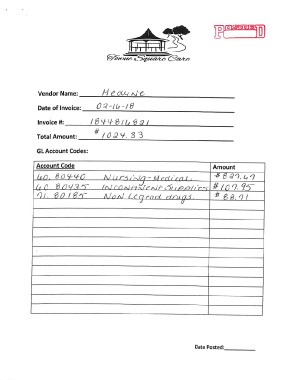 POSTED
Towne Square Care
Vendor Name: Medline
Date of Invoice: 02-16-18
Invoice #: 1844816821
Total Amount: $1024.33
GL Account Codes:
Account Code Amount
60. 80440 Nursing-Medical $827.67
60. 80435 Incontinent Supplies $107.95
71. 80185 Non Legend drugs. $88.71
Date Posted: